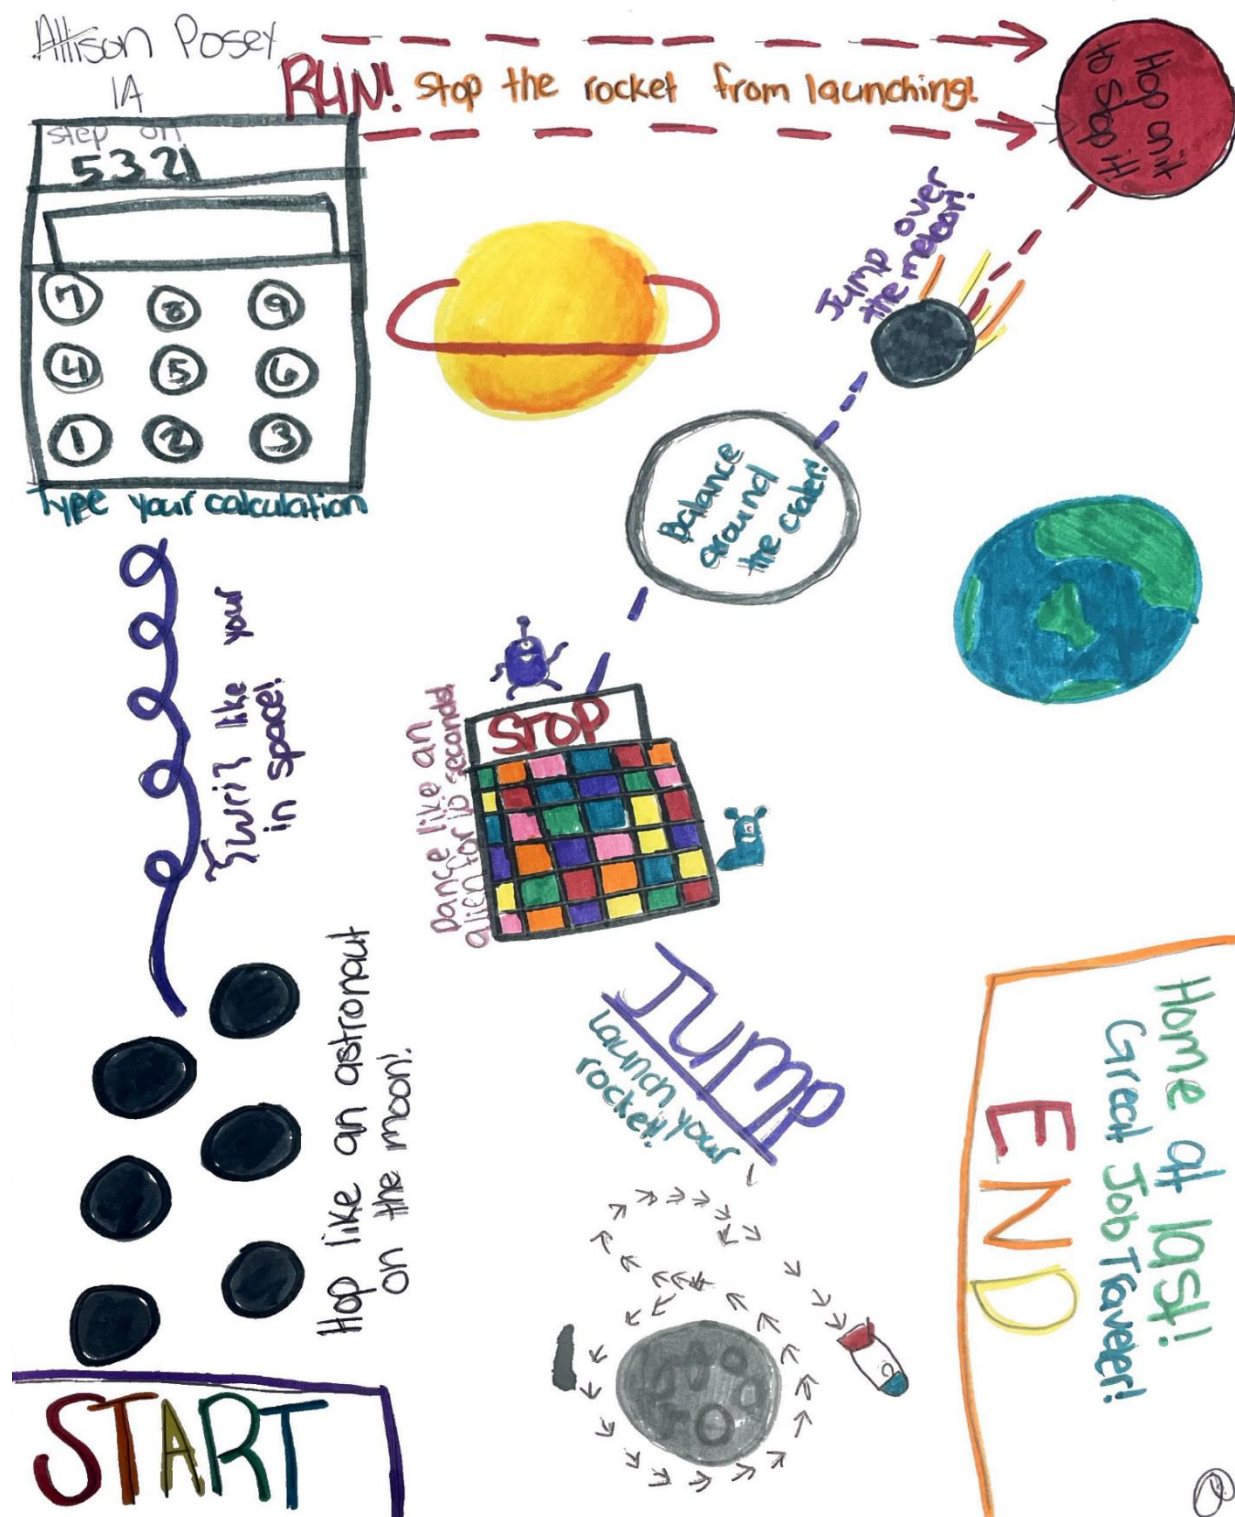 Allison Posey
1A
RUN! Stop the rocket from launching!
Hop on it
to stop it!
step on
5321
7 8 9
4 5 6
1 2 3
Type your calculation
Jump over
the meteor!
Balance
around
the crater!
Swirl like your
in space!
STOP
Dance like an
alien for 10 seconds!
Hop like an astronaut
on the moon!
JUMP
Launch your
rocket!
Home at last!
Great Job Traveler!
END
START